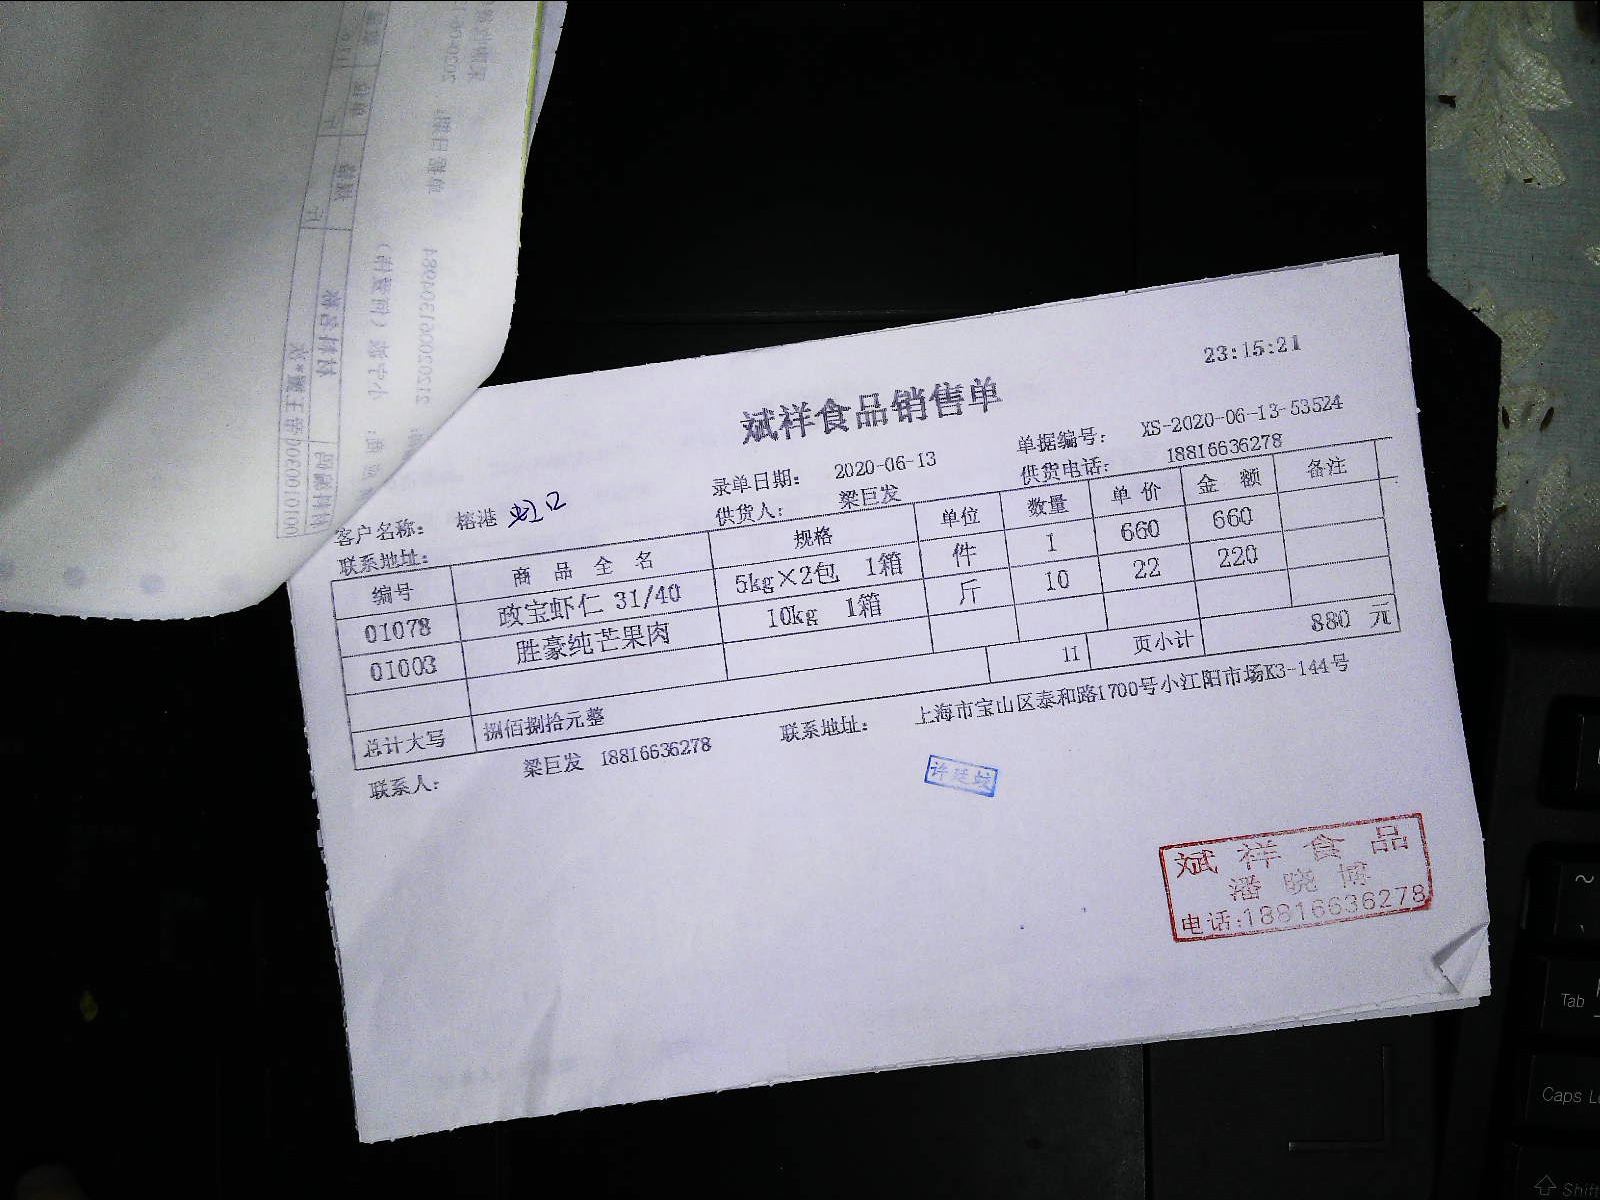 23:15:21
斌祥食品销售单
录单日期: 2020-06-13 单据编号: XS-2020-06-13-53524
客户名称: 榕港 虹口 供货人: 梁巨发 供货电话: 18816636278
联系地址:
编号 商品全名 规格 单位 数量 单价 金额 备注
01078 政宝虾仁 31/40 5kg×2包 1箱 件 1 660 660
01003 胜豪纯芒果肉 10kg 1箱 斤 10 22 220
11 页小计 880 元
总计大写 捌佰捌拾元整
联系人: 梁巨发 18816636278 联系地址: 上海市宝山区泰和路1700号小江阳市场K3-144号
许廷蛟
斌祥食品
潘晓博
电话:18816636278
Tab
Caps L
Shift